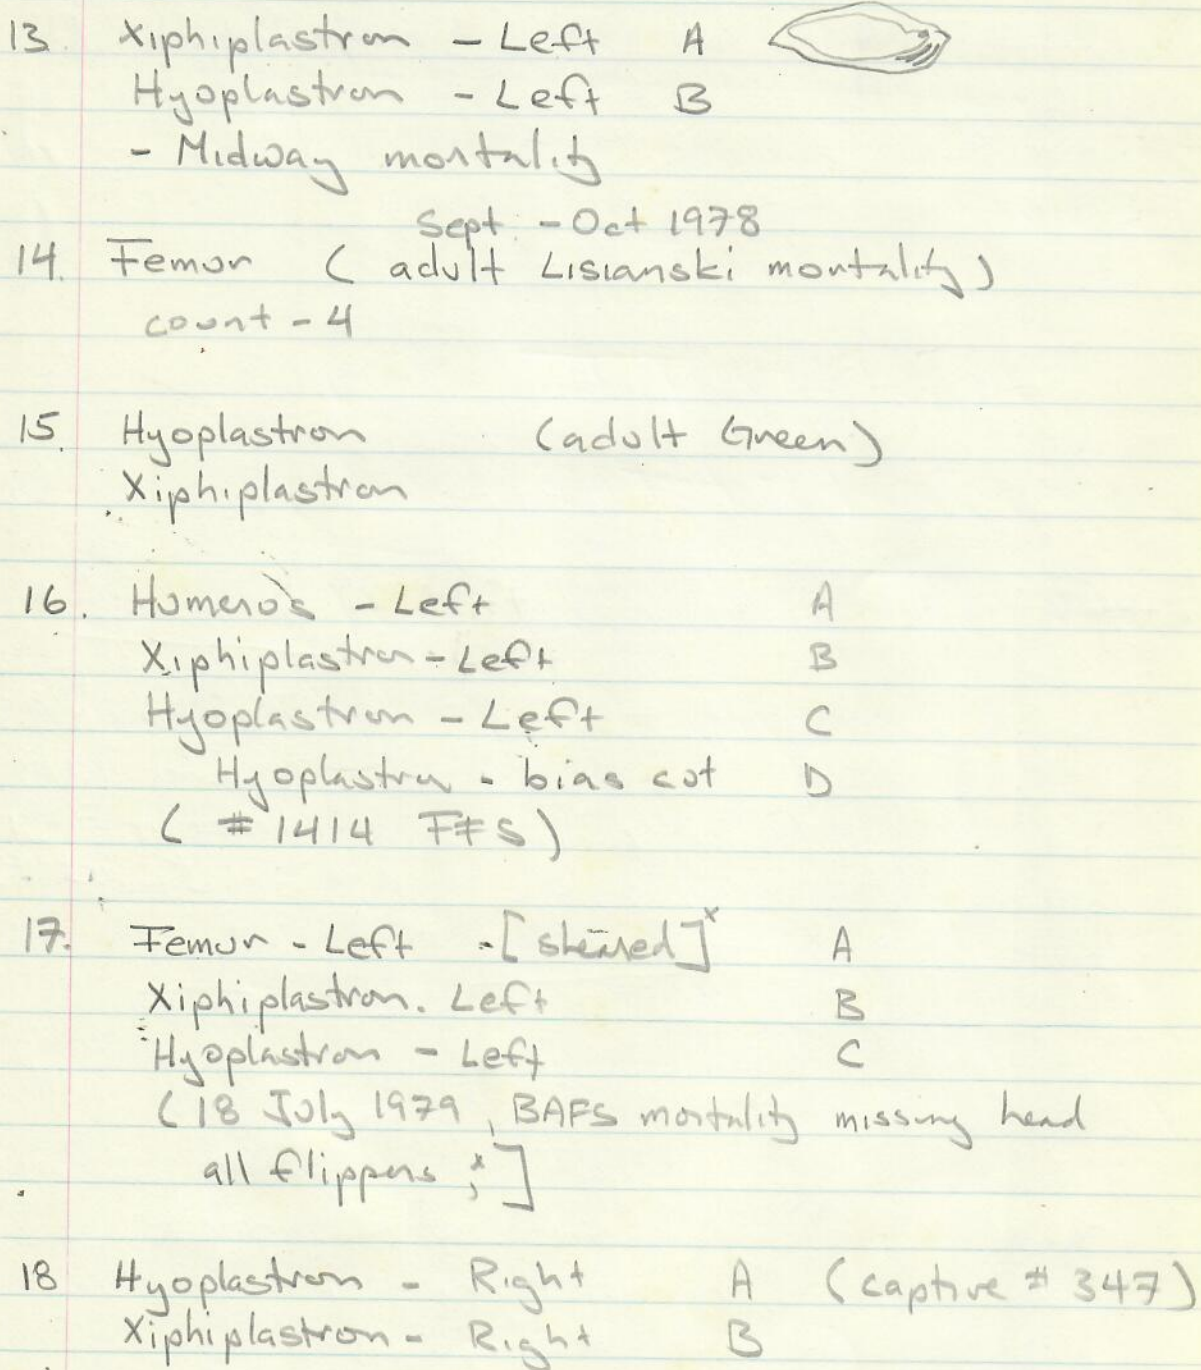 13. Xiphiplastron - Left A
Hyoplastron - Left B
- Midway mortality
Sept. - Oct 1978
14. Femur ( adult Lisianski mortality )
count - 4
15. Hyoplastron (adult Green)
Xiphiplastron
16. Humerus - Left A
Xiphiplastron - Left B
Hyoplastron - Left C
Hyoplastron - bias cut D
( # 1414 FFS )
17. Femur - Left - [ sheared ]x A
Xiphiplastron. Left B
Hyoplastron - Left C
( 18 July 1979, BAFS mortality missing head
all flippers ;x ]
18 Hyoplastron - Right A (captive # 347)
Xiphiplastron - Right B